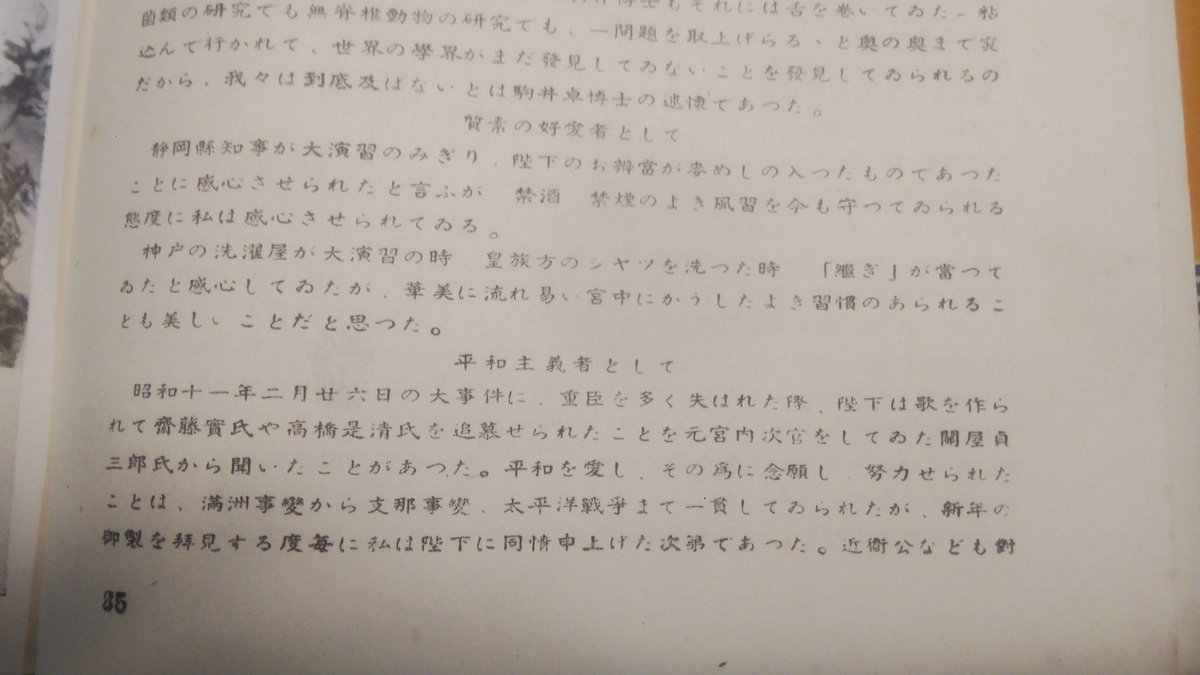 博士もそれには舌を巻いてゐた。粘
菌類の研究でも無脊椎動物の研究でも、一問題を取上げらるゝと奥の奥まで究
込んで行かれて、世界の學界がまだ發見してゐないことを發見してゐられるの
だから、我々は到底及ばないとは駒井卓博士の述懷であつた。
質素の好愛者として
静岡縣知事が大演習のみぎり、陛下のお辨當が麥めしの入つたものであつた
ことに感心させられたと言ふが　禁酒　禁煙のよき風習を今も守つてゐられる
態度に私は感心させられてゐる。
神戸の洗濯屋が大演習の時　皇族方のシヤツを洗つた時　「繼ぎ」が當つて
ゐたと感心してゐたが、華美に流れ易い宮中にかうしたよき習慣のあられるこ
とも美しいことだと思つた。
平和主義者として
昭和十一年二月廿六日の大事件に、重臣を多く失はれた際、陛下は歌を作ら
れて齋藤實氏や高橋是清氏を追慕せられたことを元宮内次官をしてゐた關屋貞
三郎氏から聞いたことがあつた。平和を愛し、その爲に念願し　努力せられた
ことは、滿洲事變から支那事變、太平洋戰爭まで一貫してゐられたが、新年の
御製を拜見する度毎に私は陛下に同情申上げた次第であつた。近衞公なども對
85